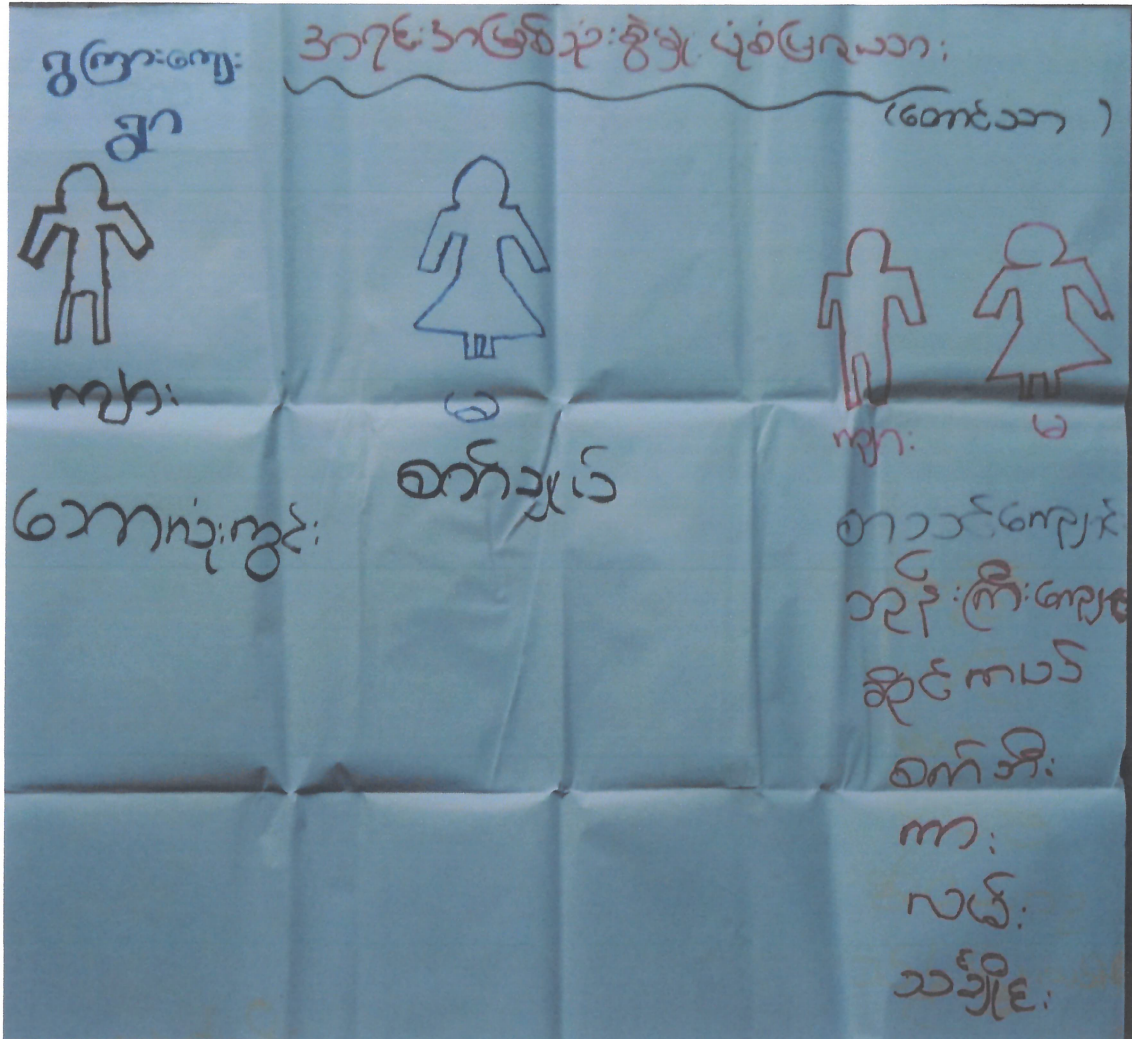 ရွှကြားကျေး
ရွာ
အရင်းအမြစ်သုံးစွဲမှု ပုံစံပြဇယား
(တောင်သာ )
ကျား
မ
ကျား
မ
ဘောလုံးကွင်း
စက်ချုပ်
စာသင်ကျောင်း
ဘုန်းကြီးကျောင်း
ဆိုင်ကယ်
စက်ဘီး
ကား
လမ်း
သင်္ချိုင်း